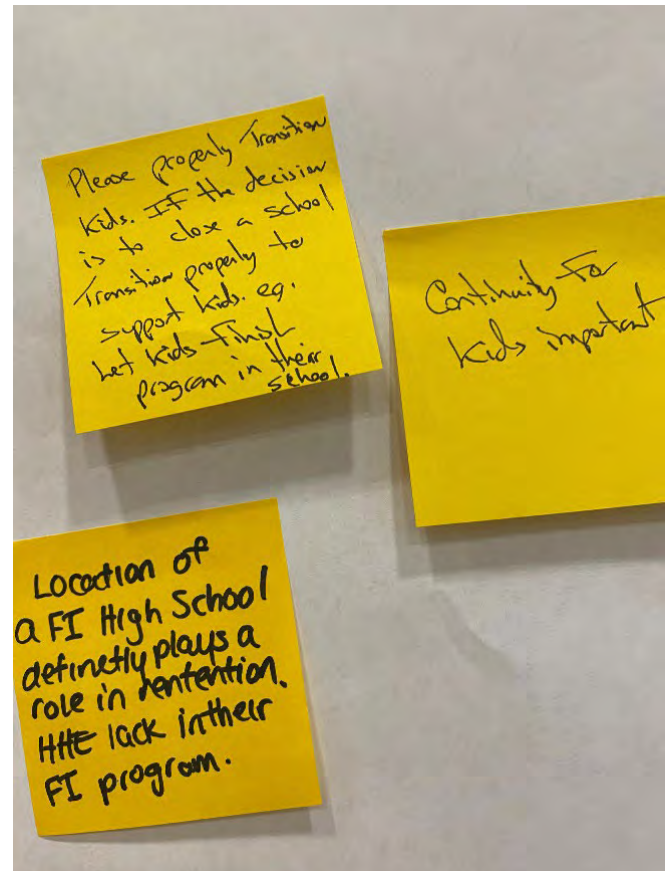 Please properly Transition
Kids. If the decision
is to close a school
Transition properly to
support kids. eg.
Let kids finish
program in their
school.
Continuity for
kids important
Location of
a FI High School
definetly plays a
role in rentention.
HHE lack in their
FI program.